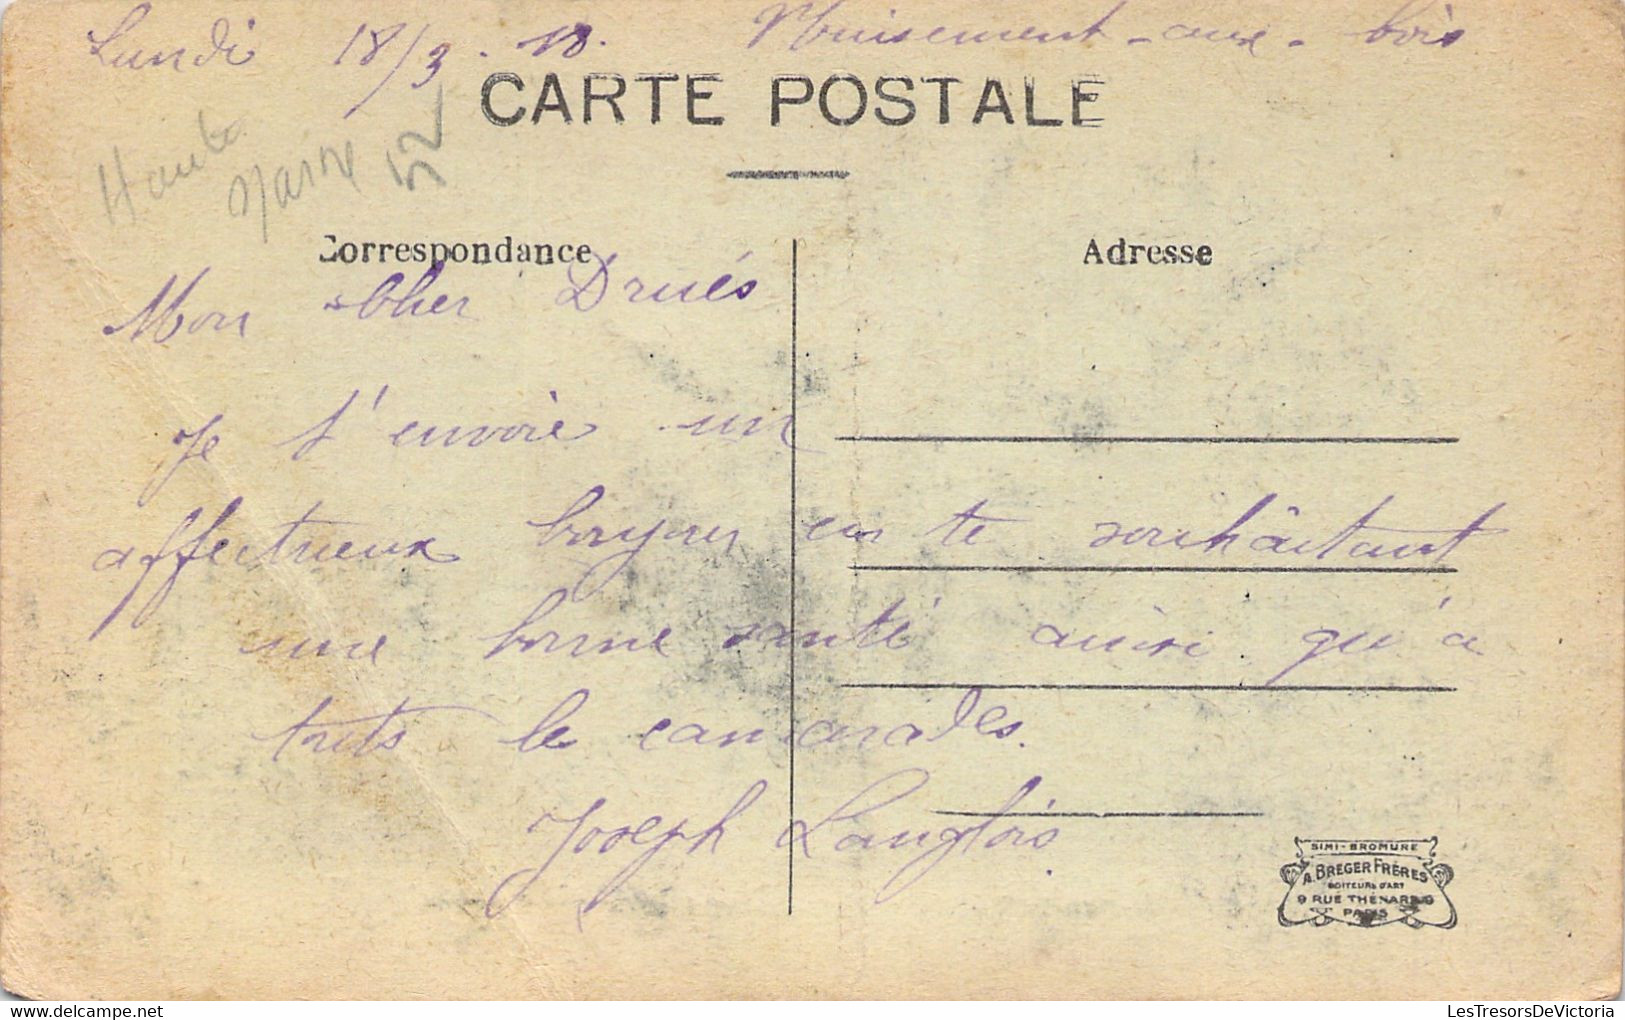 Lundi 18/3.18. Nuisement-aux-bois
CARTE POSTALE
Haute
Marne 52
Correspondance
Adresse
Mon cher Drués
Je t'envoie un
affectueux bonjour en te souhaitant
une bonne santé ainsi qu'à
touts le camarades.
Joseph Langlois
SIMI-BROMURE
A. BREGER FRÈRES
EDITEURS D'ART
9 RUE THÉNARD 9
PARIS
LesTresorsDeVictoria.com